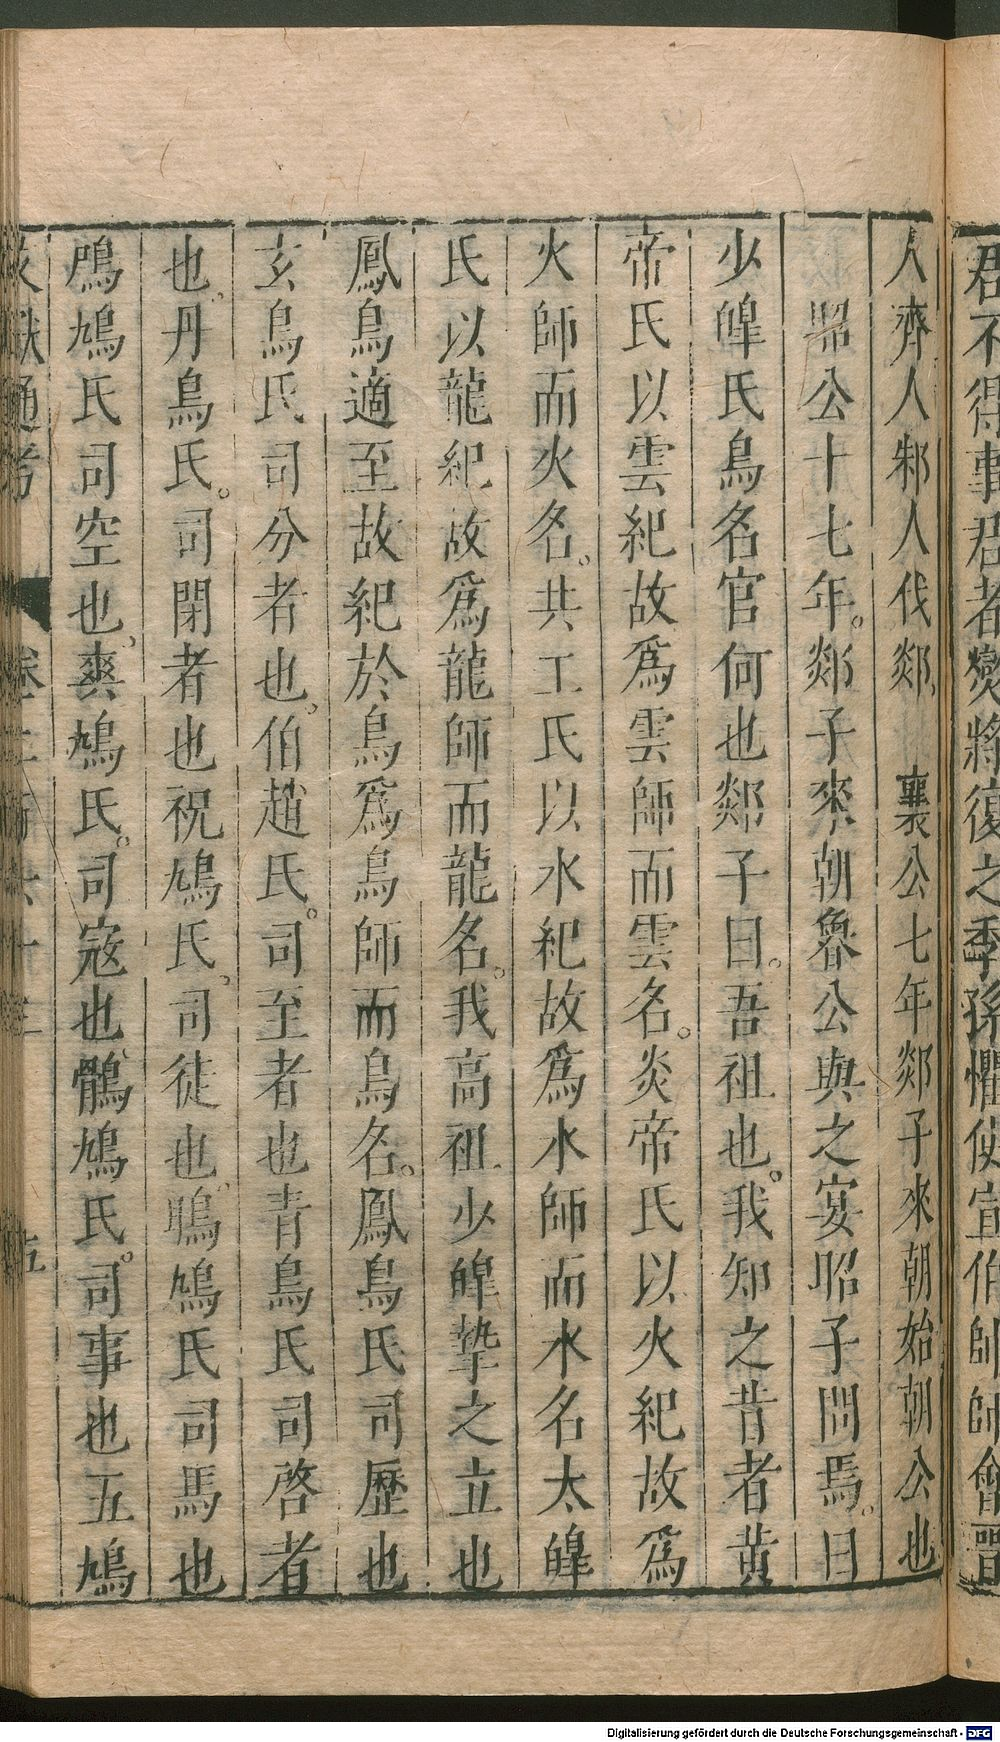 君不得事君者燮將復之季孫懼使宣伯帥師會
人齊人邾人伐郯 襄公七年郯子來朝始朝公也
昭公十七年郯子來朝魯公與之宴昭子問焉曰
少皥氏鳥名官何也郯子曰吾祖也我知之昔者黃
帝氏以雲紀故爲雲師而雲名炎帝氏以火紀故爲
火師而火名共工氏以水紀故爲水師而水名太皥
氏以龍紀故爲龍師而龍名我高祖少皥摯之立也
鳳鳥適至故紀於鳥爲鳥師而鳥名鳳鳥氏司歷也
玄鳥氏司分者也伯趙氏司至者也青鳥氏司啓者
也丹鳥氏司閉者也祝鳩氏司徒也鴡鳩氏司馬也
鳲鳩氏司空也爽鳩氏司寇也鶻鳩氏司事也五鳩
文獻通考 卷二百六十三 五
Digitalisierung gefördert durch die Deutsche Forschungsgemeinschaft - DFG